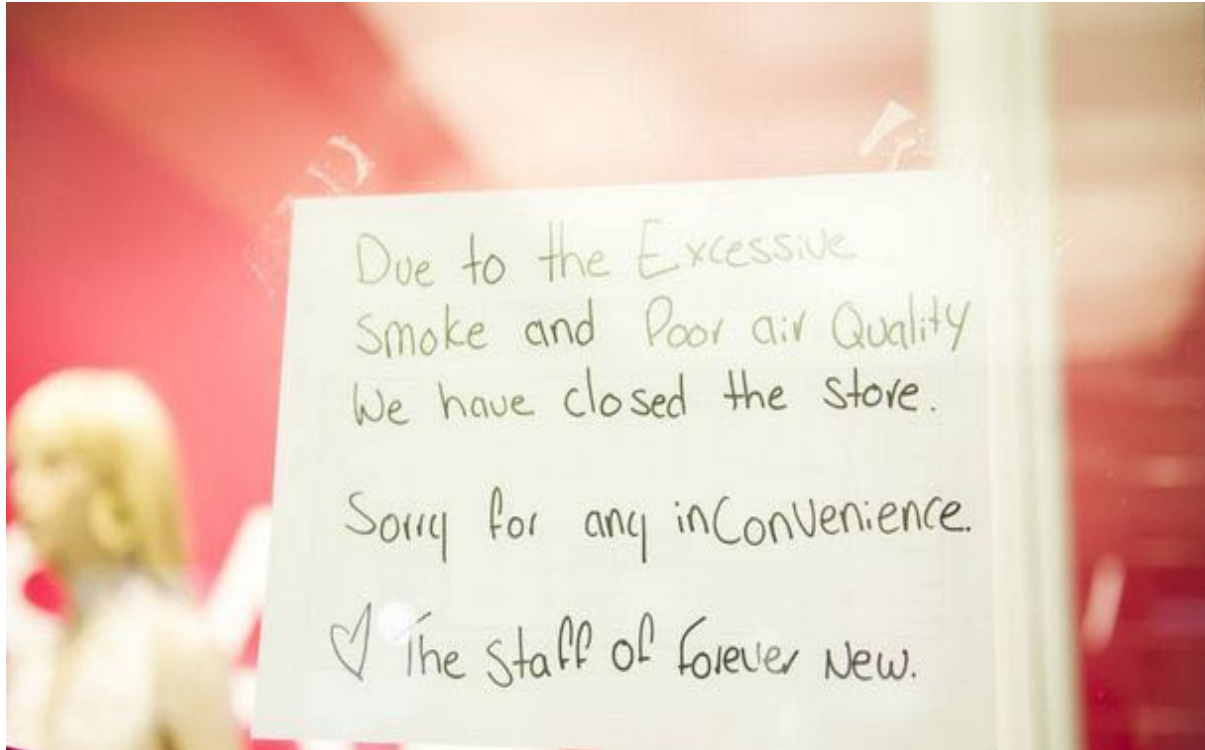 Due to the Excessive
Smoke and Poor air Quality
We have closed the store.
Sorry for any inConvenience.
The Staff of forever New.